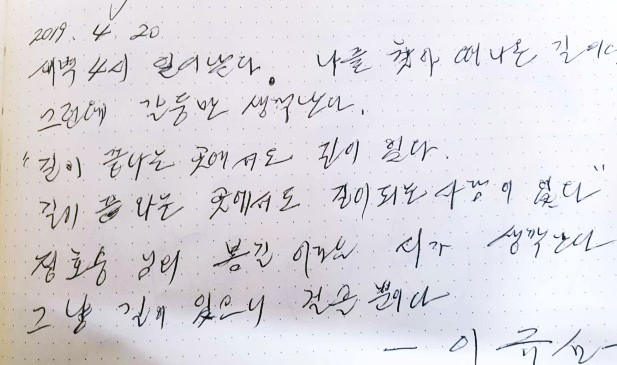 2019. 4. 20
새벽 4시 일어난다. 나를 찾아 떠나온 길이다
그런데 갈등만 생각난다.
"길이 끝나는 곳에서도 길이 있다.
길이 끝나는 곳에서도 길이되는 사람이 있다"
정호승 님의 봄길 이라는 시가 생각난다
그냥 길이 있으니 걸을 뿐이다
- 이 규 -